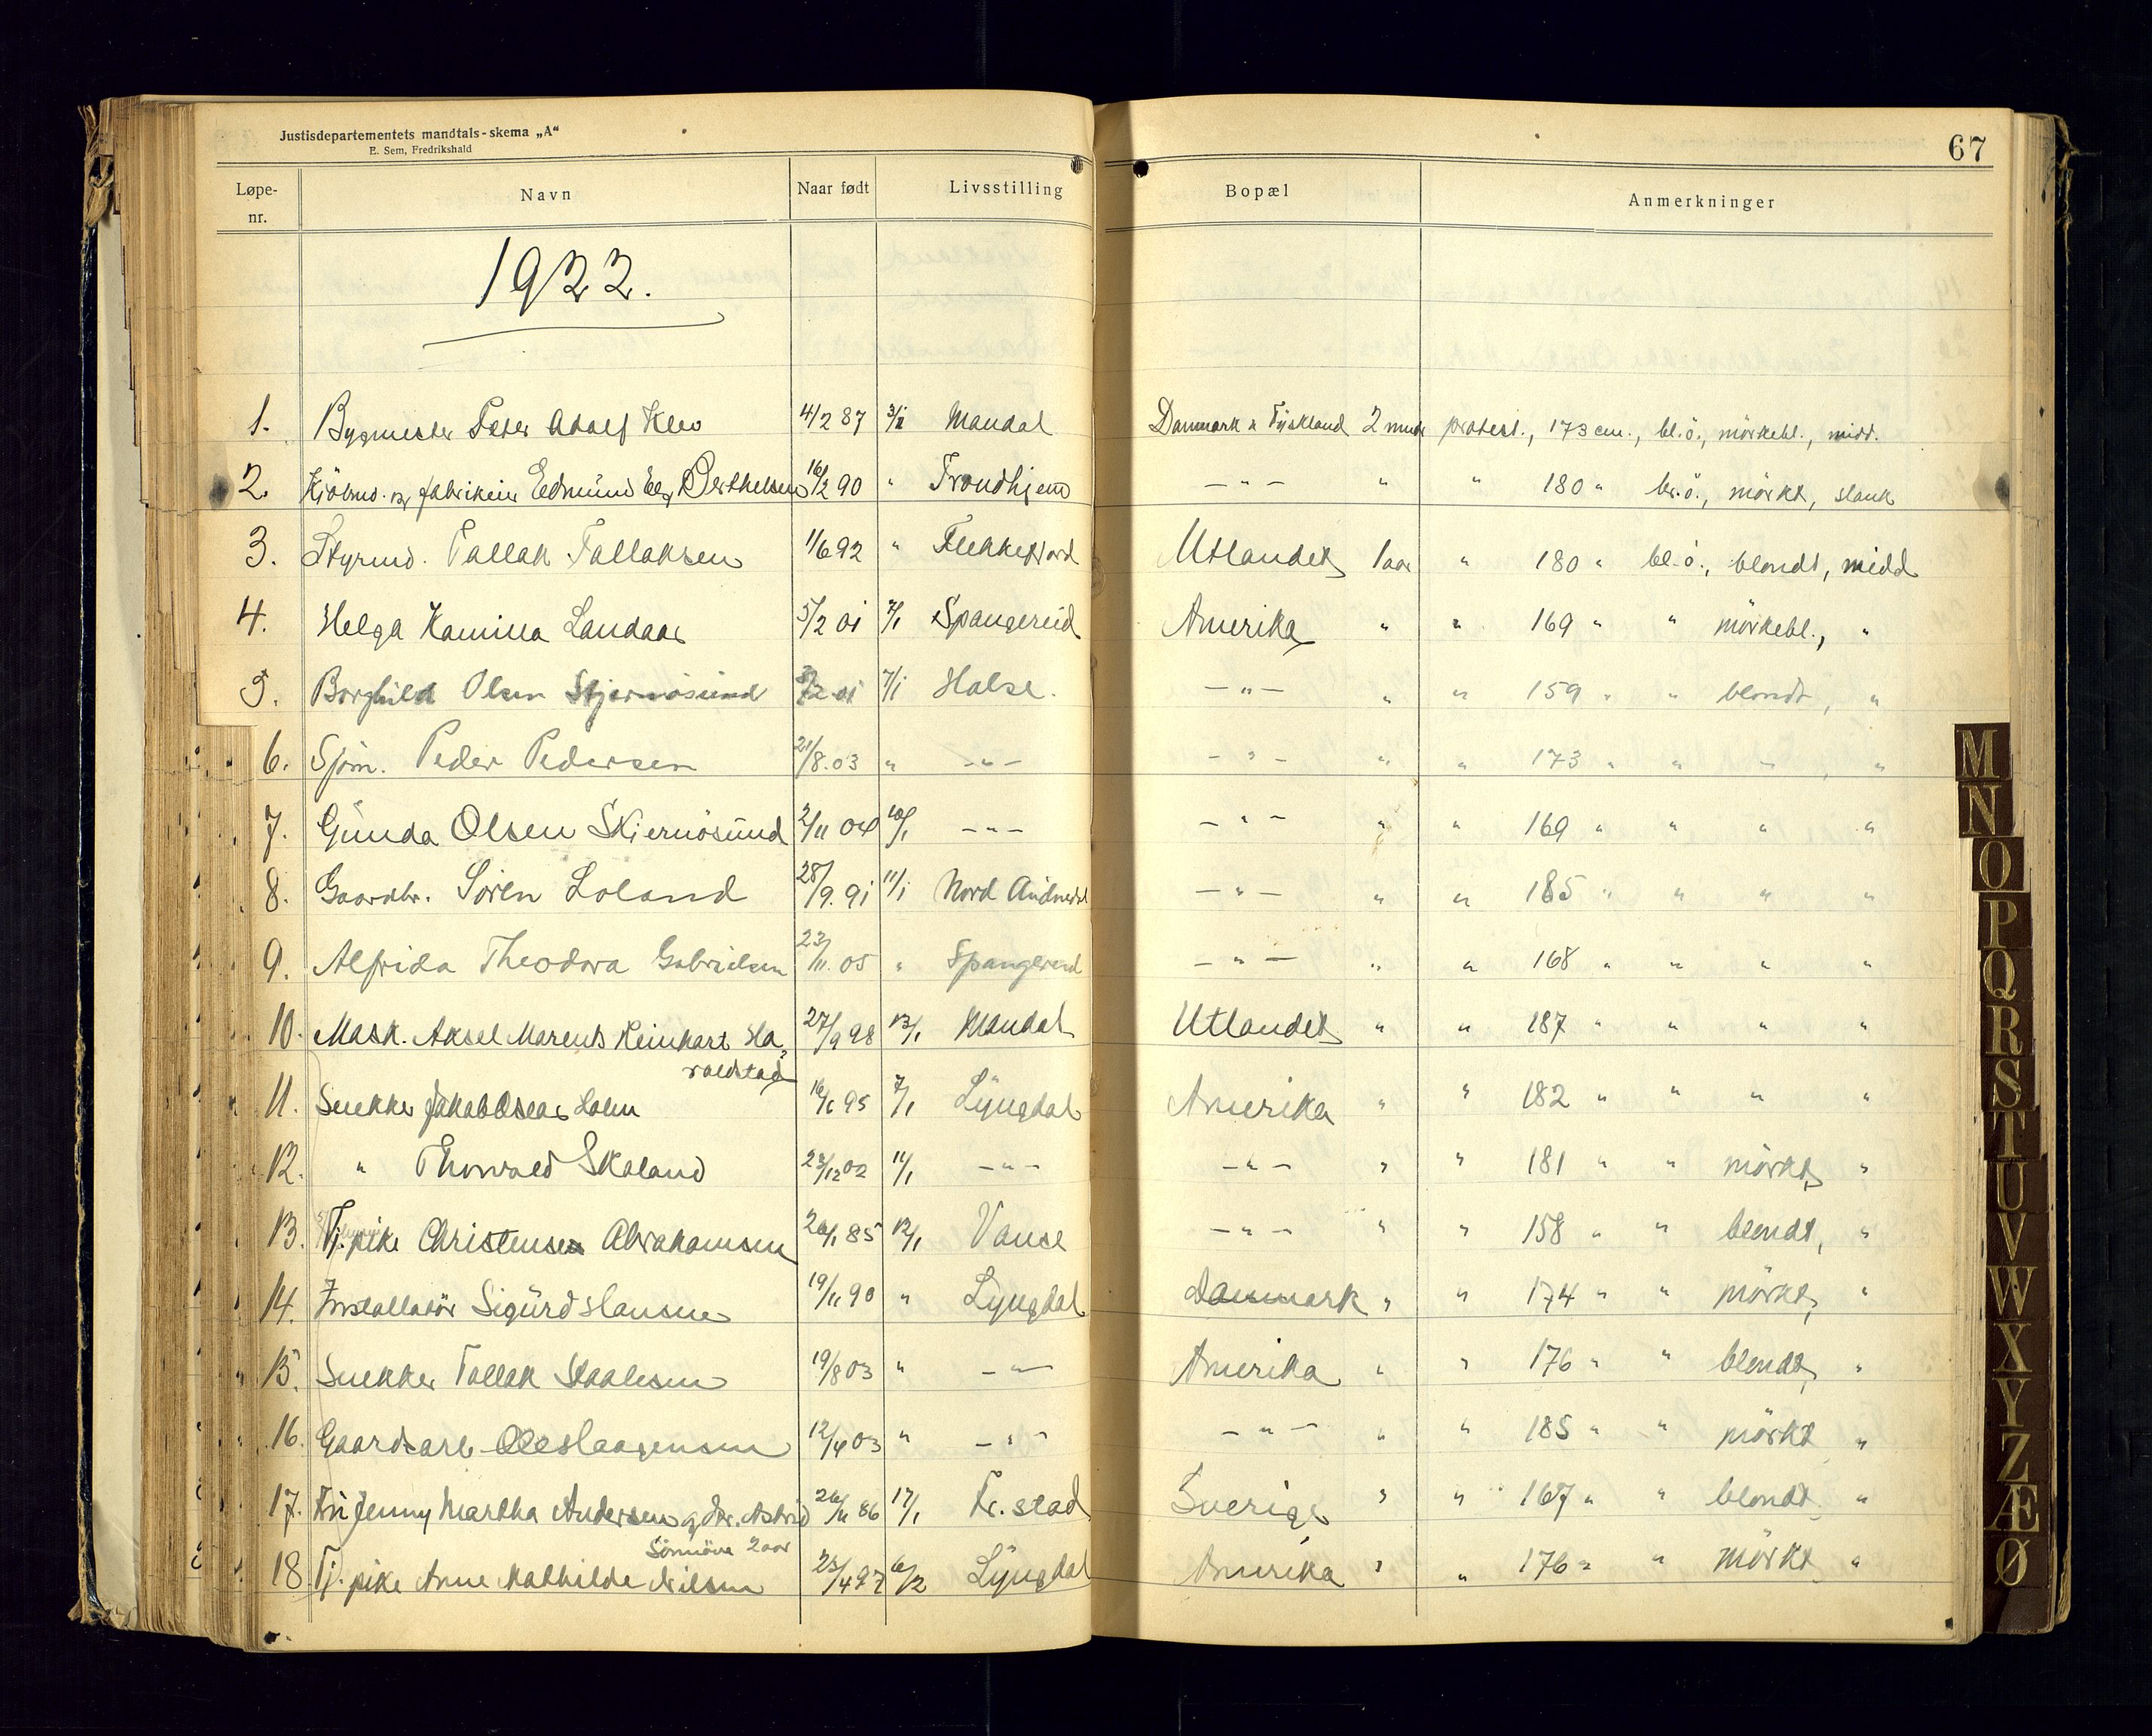 Justisdepartementets mandtals-skema „A“
E. Sem, Fredrikshald
67
Løpe-nr. Navn Naar født Livsstilling Bopæl Anmerkninger
1922.
1. Bygmester Peter Adolf Klev 4/2 87 3/1 Mandal Danmark & Tyskland 2 mndr protest., 173 cm., bl.ö., mörkebl., midd.
2. Kjöbmd. og fabrikeier Edmund Berthelsen 16/2 90 " Trondhjem — " — " " 180 " br.ö., mörkt, slank
3. Styrmd. Tallak Tallaksen 11/6 92 " Flekkefjord Utlandet 1 aar " 180 " bl.ö., blondt, midd
4. Helga Kamilla Landaas 5/2 01 7/1 Spangereid Amerika " " 169 " " mörkebl., "
5. Borghild Olsen Skjernösund 7/1 Halse. — " — " " 159 " " blondt, "
6. Sjöm. Peder Pedersen 21/8.03 " — " — — " — " " 173 " " — , "
7. Gunda Olsen Skjernösund 2/11 04 10/1 — " — — " — " " 169 " " " "
8. Gaardbr. Sören Loland 28/9.91 11/1 Nord Audnedal — " — " " 185 " " " "
9. Alfrida Theodora Gabrielsen 23/11.05 " Spangereid — " — " " 168 " " " "
10. Mask. Aksel Marents Reinhart Ha-
roldstad 27/9 98 13/1 Mandal Utlandet " " 187 " " " "
11. Snekker Jakob Oscar Holm 16/6 95 7/1 Lyngdal Amerika " " 182 " " " "
12. " Thorvald Skoland 23/12 02 11/1 — " — — " — " " 181 " " mörkt, "
13. Tj.pike Christense Abrahamsen 26/1 85 12/1 Vanse — " — " " 158 " " blondt, "
14. Installatör Sigurd Hansen 19/11 90 " Lyngdal Danmark " " 174 " " mörkt, "
15. Snekker Tallak Staalesen 19/8 03 " — " — Amerika " " 176 " " blondt, "
16. Gaardsarb. Ole Haagensen 12/4 03 " — " — — " — " " 185 " " mörkt "
17. Fru Jenny Martha Andersen og dtr. Astrid
Sönnöve 2 aar 26/11 86 17/1 Fr.stad Sverige " " 167 " " blondt "
18. Tj. pike Anne Mathilde Nilsen 25/4 97 6/2 Lyngdal Amerika " " 176 " " mörkt "
M
N
O
P
Q
R
S
T
U
V
W
X
Y
Z
Æ
Ø